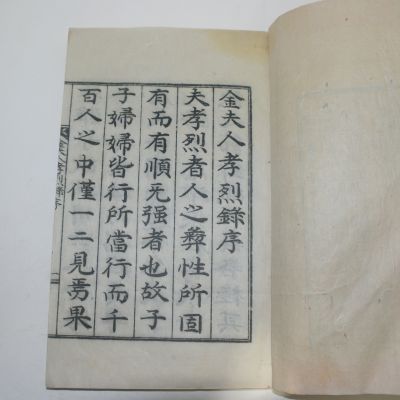 金夫人孝烈錄序
夫孝烈者人之彛性所固
有而有順无强者也故子
子婦婦皆行所當行而千
百人之中僅一二見焉果
金夫人孝烈錄序